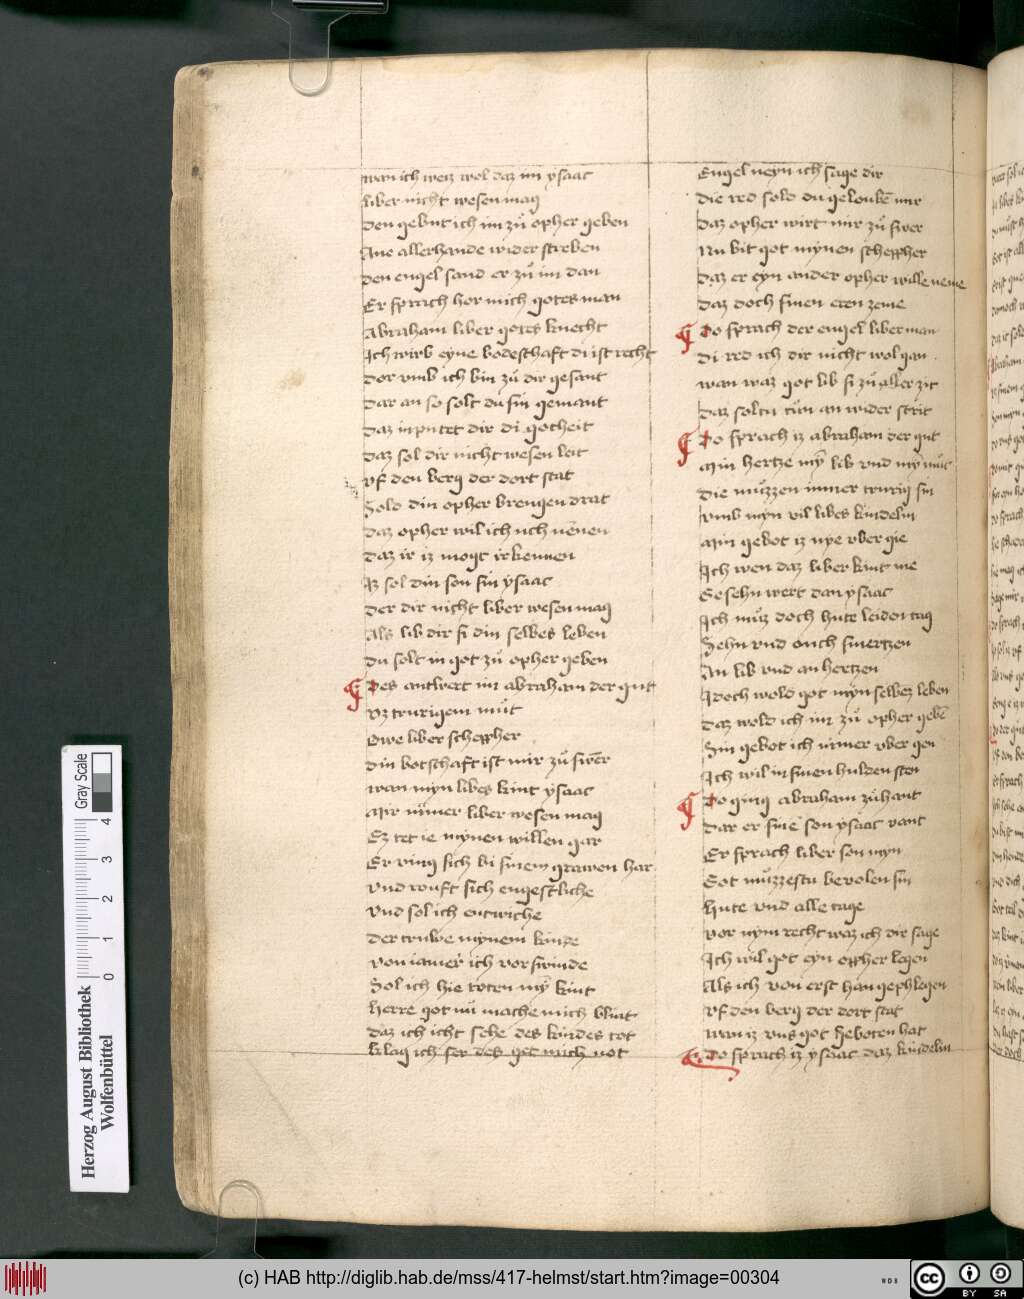 wan ich weiz wol daz im ysaac
liber nicht wesen mag
den gebut ich im zů opher geben
Ane allerhande wider streben
den engel sand er zů im dan
Er sprach hor mich gotes man
Abraham liber gotes knecht
Ich wirb eyne bodeschaft di ist recht
dor vmb ich bin zů dir gesant
dar an so solt du sin gemant
daz inputet dir di gotheit
daz sol dir nicht wesen leit
vf den berg der dort stat
Sold din opher brengen drat
daz opher wil ich uch nēnen
daz ir iz mogt irkennen
Iz sol din son sin ysaac
der dir nicht liber wesen mag
Als lib dir si din selbes leben
du solt in got zů opher geben
Des antwert im abraham der gut
vz trurigem můt
Owe liber schepher
din botschaft ist mir zů swēr
wan myn libes kint ysaac
Mir nimer liber wesen mag
Ez tet ie mynen willen gar
Er ving sich bi sinem grawen har
vnd rouft sich engestliche
vnd sol ich entwiche
der truwe mynem kinde
von iamer ich vorswinde
Sol ich hie toten mȳ kint
Herre got nu mache mich blint
daz ich icht sehe des kindes tot
klag ich ser des get mich not
Engel neyn ich sage dir
die red sold du geloubē mir
daz opher wirt mir zů swer
Nu bit got mynen schepher
daz er eyn ander opher wille neme
daz doch sinen eren zeme
Do sprach der engel liber man
di red ich dir nicht wol gan
wan waz got lib si zů aller zit
daz soltu tůn an wider strit
Do sprach iz abraham der gut
Min hertze mȳ lib vnd mȳ můt
die můzzen immer trurig sin
vmb myn vil libes kindelin
Min gebot iz nye vber gie
Ich wen daz liber kint nie
Gesehn wert dan ysaac
Ich můz doch hute leiden tag
Sehn vnd ouch smertzen
An lib vnd an hertzen
Idoch wold got myn selbez leben
daz wold ich im zů opher gebē
Sin gebot ich nimer vber gen
Ich wil in sinen hulden sten
Do ging abraham zůhant
dar er sinē son ysaac vant
Er sprach liber son myn
Got můzzestu bevolen sin
Hute vnd alle tage
vor nym recht waz ich dir sage
Ich wil got eyn opher legen
Als ich von erst han gephlegen
vf den berg der dort stat
wan iz vns got geboten hat
Do sprach iz ysaac daz kindelin
Herzog August Bibliothek
Wolfenbüttel
Gray Scale
0 1 2 3 4
(c) HAB http://diglib.hab.de/mss/417-helmst/start.htm?image=00304
WDB
cc BY SA